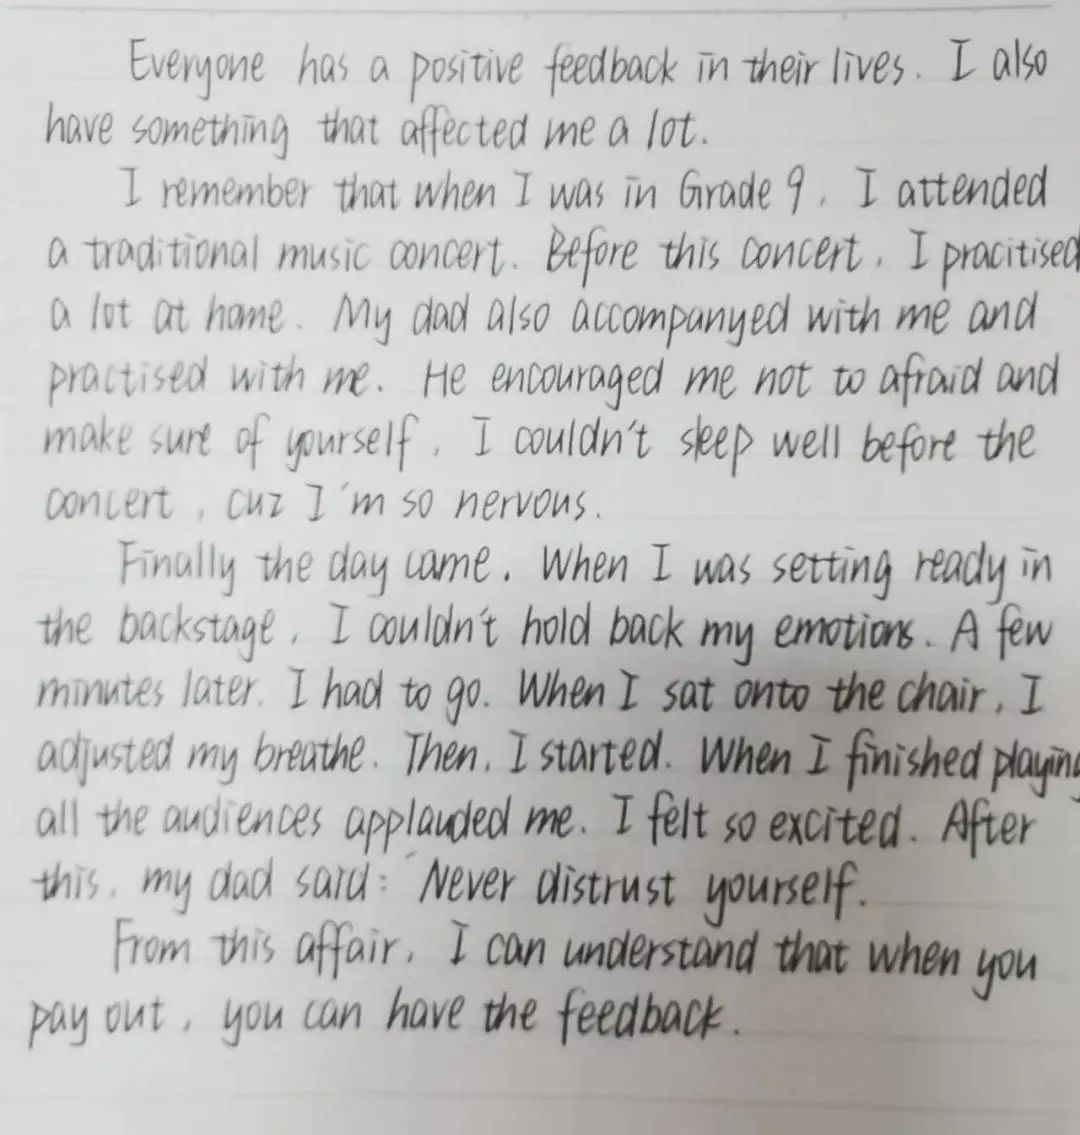 Everyone has a positive feedback in their lives. I also
have something that affected me a lot.
I remember that when I was in Grade 9, I attended
a traditional music concert. Before this concert, I pracitised
a lot at home. My dad also accompanyed with me and
practised with me. He encouraged me not to afraid and
make sure of yourself, I couldn't sleep well before the
concert, cuz I'm so nervous.
Finally the day came. When I was setting ready in
the backstage, I couldn't hold back my emotions. A few
minutes later. I had to go. When I sat onto the chair, I
adjusted my breathe. Then, I started. When I finished playing
all the audiences applauded me. I felt so excited. After
this, my dad said: "Never distrust yourself.
From this affair, I can understand that when you
pay out, you can have the feedback.